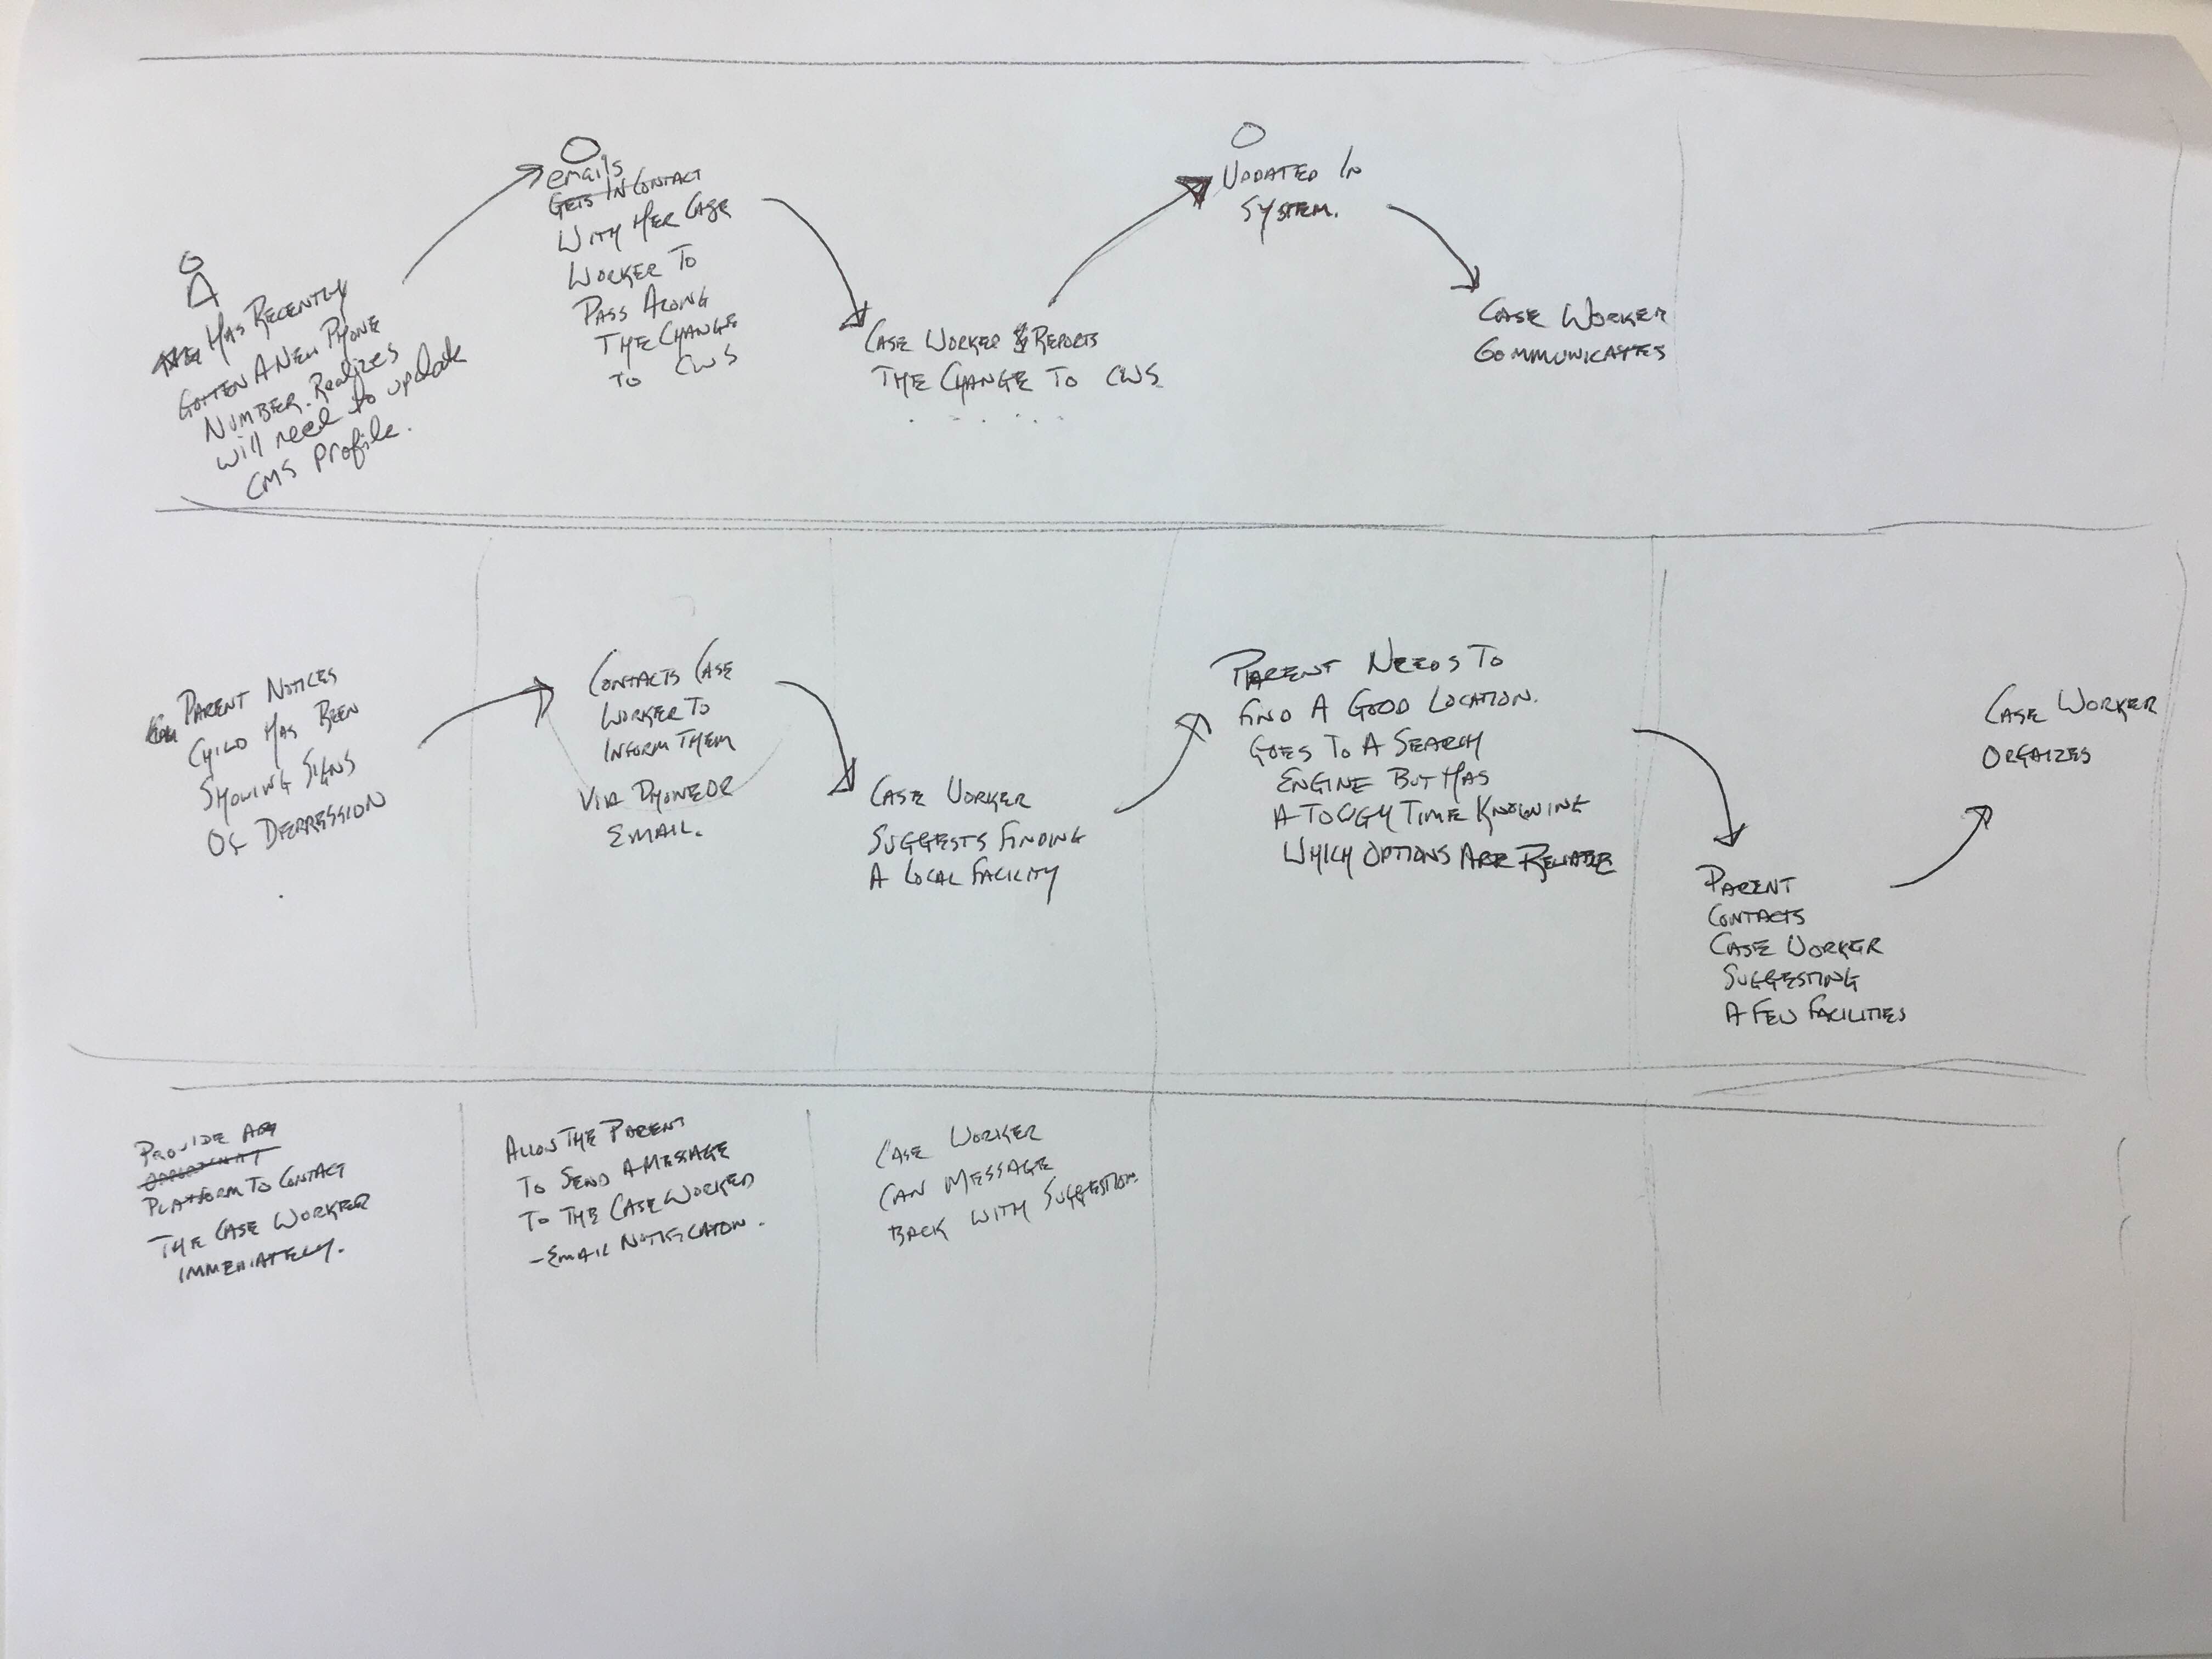 Has Recently
Gotten A New Phone
Number. Realizes
will need to update
CMS profile.
emails
Gets in Contact
With Her Case
Worker To
Pass Along
The Change
To CWS
Case Worker Reports
The Change To CWS
Updated In
System.
Case Worker
Communicates
Parent Notices
Child Has Been
Showing Signs
Of Depression
Contacts Case
Worker To
Inform Them
Via Phone or
Email.
Case Worker
Suggests Finding
A Local Facility
Parent Needs To
Find A Good Location.
Goes To A Search
Engine But Has
A Tough Time Knowing
Which Options Are Reliable
Parent
Contacts
Case Worker
Suggesting
A Few Facilities
Case Worker
Orgaizes
Provide an
Platform To Contact
The Case Worker
Immediately.
Allow The Parent
To Send A Message
To The Case Worker
- Email Notification.
Case Worker
Can Message
Back With Suggestion.